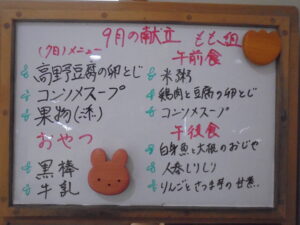 9月の献立
もも組
(9日)メニュー
高野豆腐の卵とじ
コンソメスープ
果物(添)
おやつ
黒棒
牛乳
午前食
米粥
鶏肉と豆腐の卵とじ
コンソメスープ
午後食
白身魚と大根のおじや
人参しりしり
りんごとさつま芋の甘煮